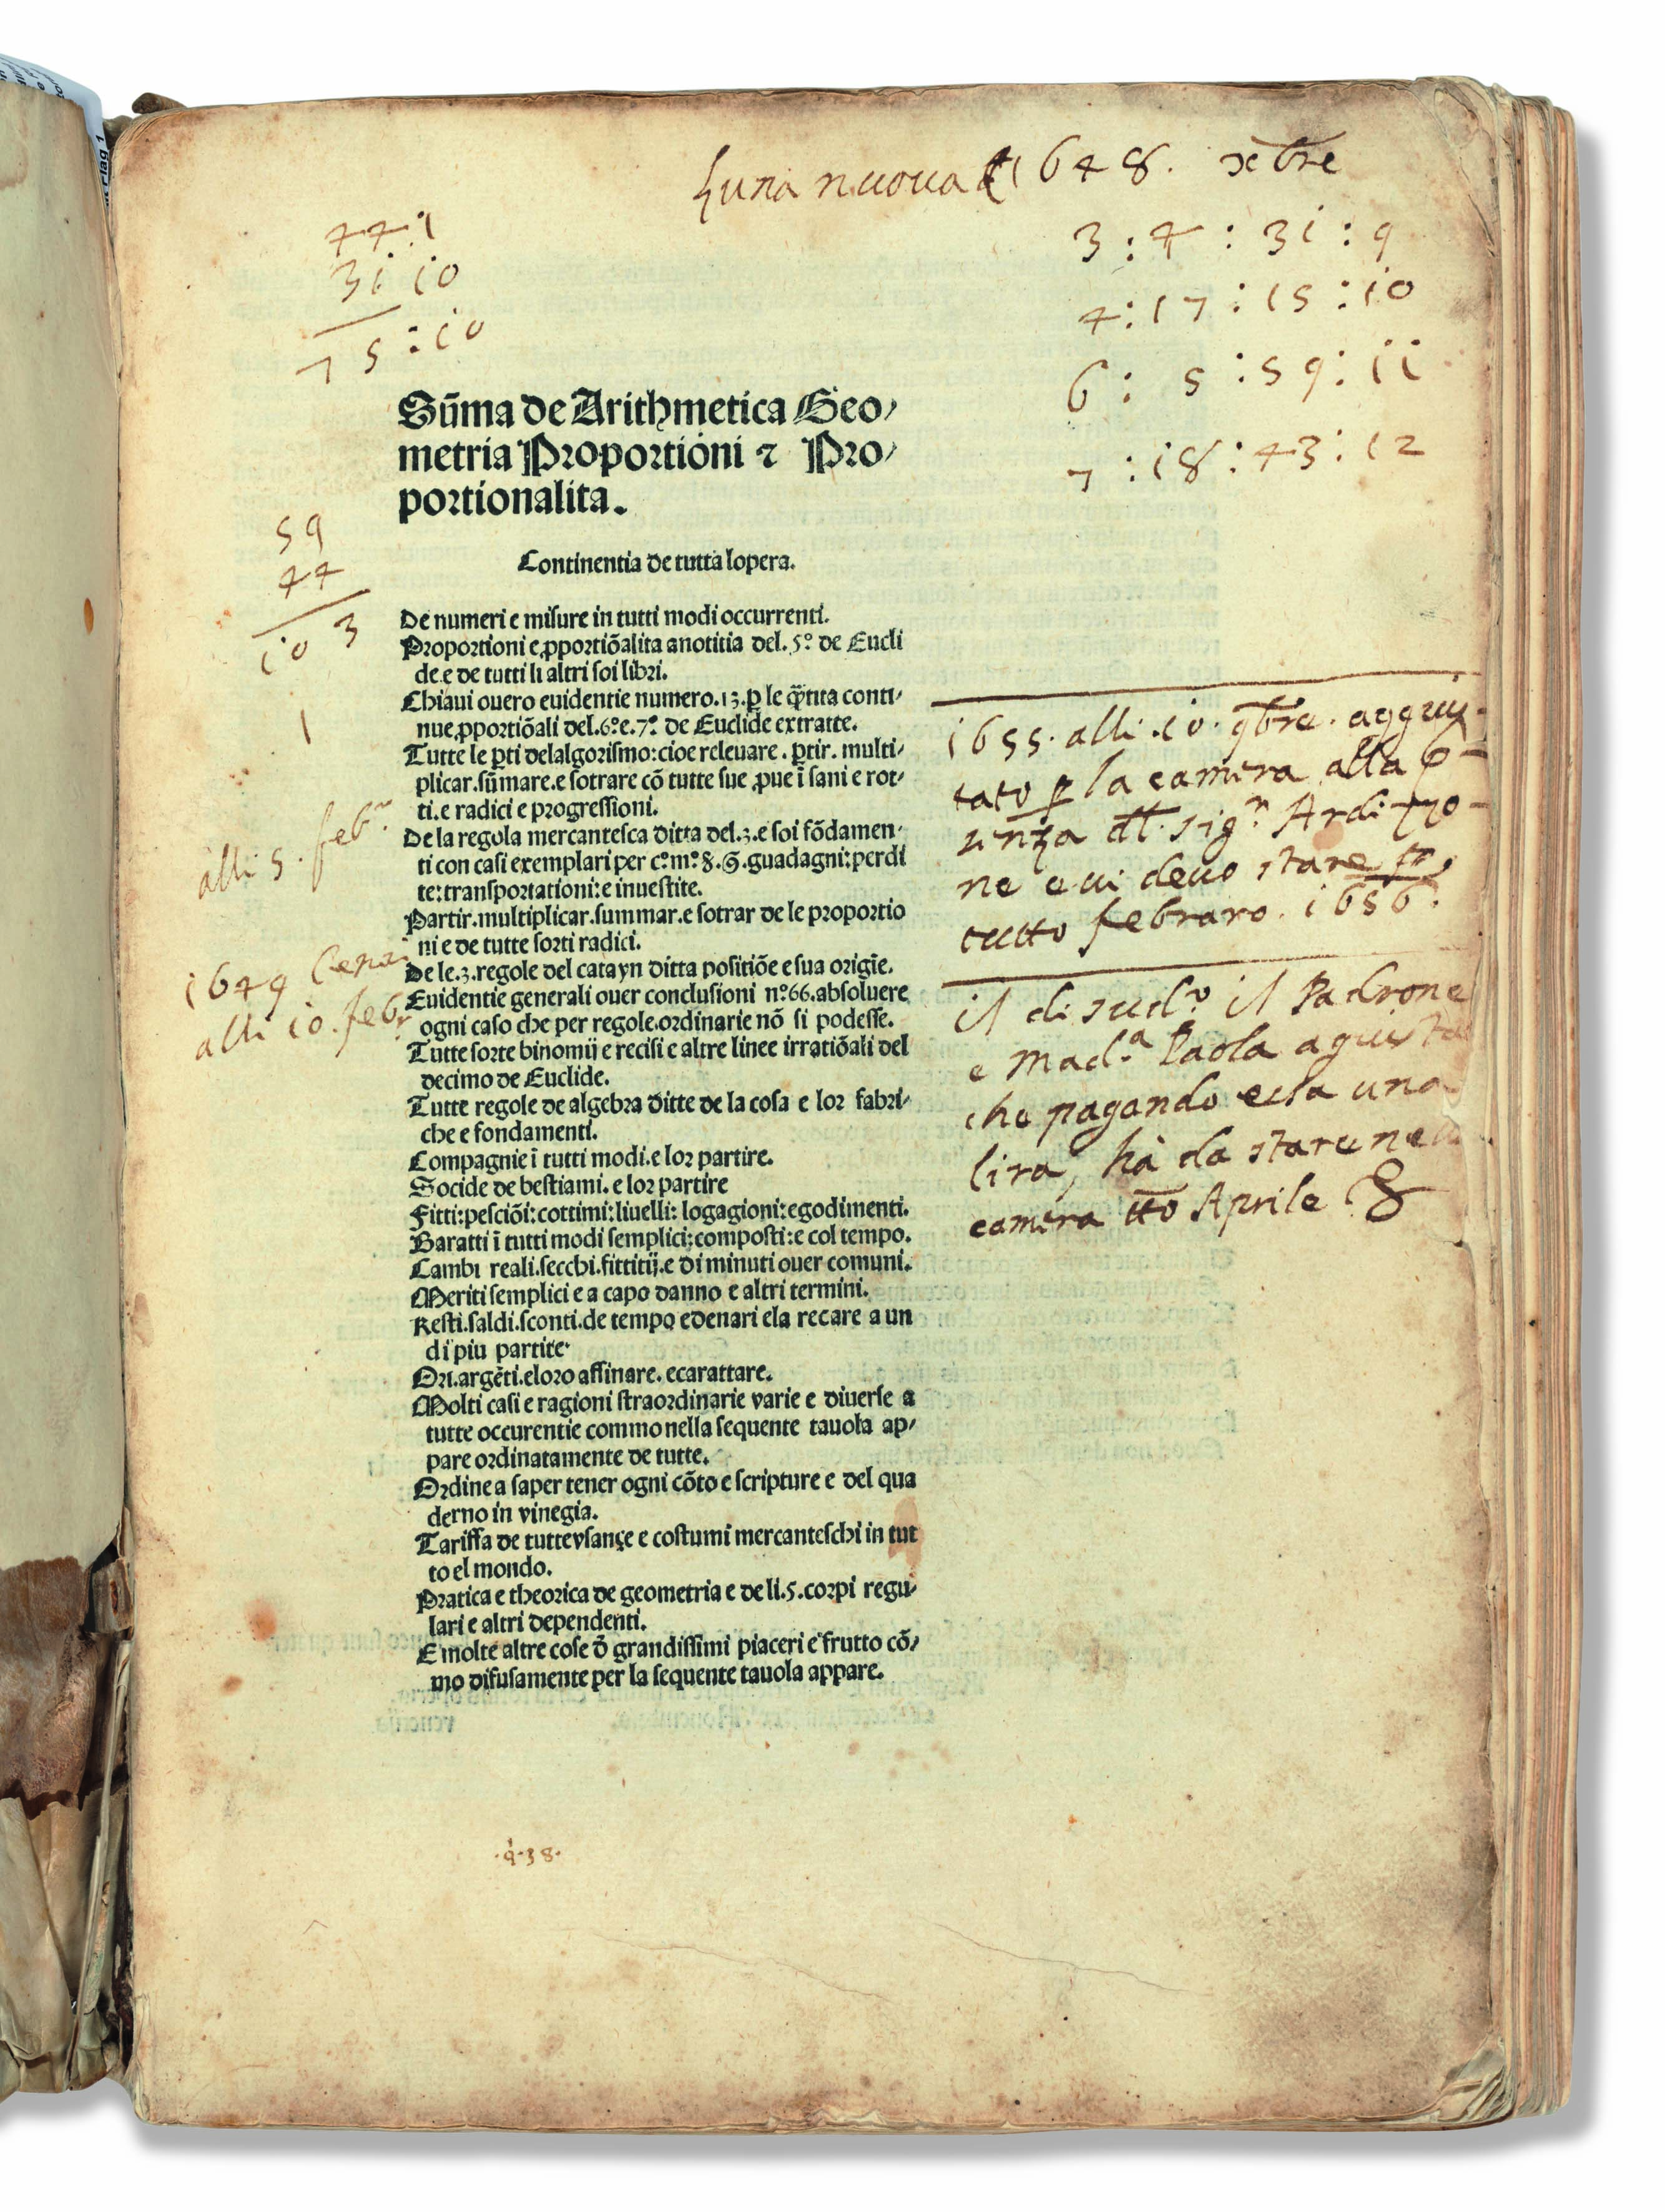 Luna nuoua 1648. xbre
3 : 4 : 31 : 9
4 : 17 : 15 : 10
6 : 5 : 59 : 11
7 : 18 : 43 : 12
44 1
31 10
75 : 10
Sūma de Arithmetica Geo⸗
metria Proportioni ⁊ Pro⸗
portionalita.
59
44
103
1
Continentia de tutta lopera.
De numeri e misure in tutti modi occurrenti.
Proportioni e ꝓportiōalita anotitia del. 5º de Eucli
de. e de tutti li altri soi libri.
Chiaui ouero euidentie numero. 13. ꝑ le q̄tita conti⸗
nue ꝓportiōali del. 6º e. 7º de Euclide extratte.
Tutte le ꝑti delalgorismo: cioe releuare. ꝑtir. multi⸗
plicar. sūmare. e sotrare cō tutte sue ꝓue ī sani e rot⸗
ti. e radici e progressioni.
De la regola mercantesca ditta del. 3. e soi fōdamen⸗
ti con casi exemplari per cº mº guadagni: perdi
te: transportationi: e inuestite.
Partir. multiplicar. summar. e sotrar de le proportio
ni e de tutte sorti radici.
De le. 3. regole del catayn ditta positiōe e sua origīe.
Euidentie generali ouer conclusioni nº 66. absoluere
ogni caso che per regole. ordinarie nō si podesse.
Tutte sorte binomii e recisi e altre linee irratiōali del
decimo de Euclide.
Tutte regole de algebra ditte de la cosa e lor fabri⸗
che e fondamenti.
Compagnie ī tutti modi. e lor partire.
Socide de bestiami. e lor partire
Fitti: pesciōi: cottimi: liuelli: logagioni: egodimenti.
Baratti ī tutti modi semplici: composti: e col tempo.
Cambi reali. secchi. fittitij. e di minuti ouer comuni.
Meriti semplici e a capo danno e altri termini.
Resti. saldi. sconti. de tempo edenari ela recare a un
di piu partite.
Ori. argēti. eloro affinare. ecarattare.
Molti casi e ragioni straordinarie varie e diuerse a
tutte occurentie commo nella sequente tauola ap⸗
pare ordinatamente de tutte.
Ordine a saper tener ogni cōto e scripture e del qua
derno in vinegia.
Tariffa de tutte vsançe e costumi mercanteschi in tut
to el mondo.
Pratica e theorica de geometria e de li. 5. corpi regu⸗
lari e altri dependenti.
E molte altre cose ō grandissimi piaceri e frutto cō⸗
mo difusamente per la sequente tauola appare.
alli 5. febr
1649
alli 10. febr
1655. alli. 10. 9bre. aggius⸗
tato ꝑ la camera alla p⸗
dt. sigr Ardizzo⸗
ne e ui deuo stare
tutto febraro. 1656.
il di sudo il Padrone
e Mada Paola
che pagando essa una
lira, hà da stare
camera tto Aprile
38.